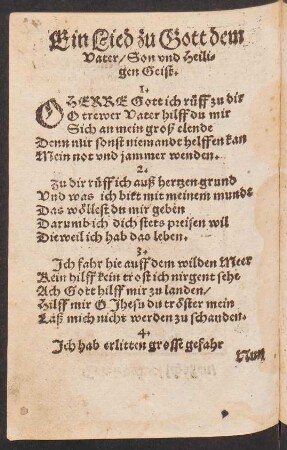 Ein Lied zu Gott dem
Vater / Son vnd Heili-
gen Geist.
1.
O HERRE Gott ich rüff zu dir
O trewer Vater hilff du mir
Sich an mein groß elende
Denn nur sonst niemandt helffen kan
Mein not vnd jammer wenden.
2.
Zu dir rüff ich auß hertzen grund
Vnd was ich bitt mit meinem mundt
Das wöllest du mir geben
Darumb ich dich stets preisen wil
Dieweil ich hab das leben.
3.
Ich fahr hie auff dem wilden Meer
Kein hilff kein trost ich nirgent sehe
Ach Gott hilff mir zu landen /
Hilff mir O Jhesu du tröster mein
Laß mich nicht werden zu schanden.
4.
Ich hab erlitten grosse gefahr